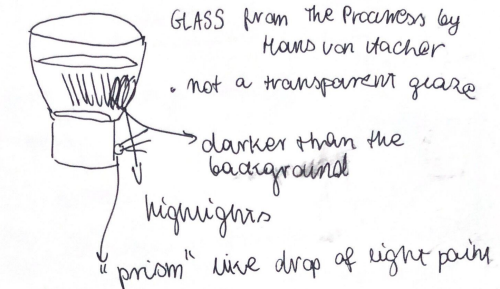 GLASS from the Procuress by
Hans von Aachen
• not a transparent glaze
darker than the
background
highlights
"prism" like drop of light paint